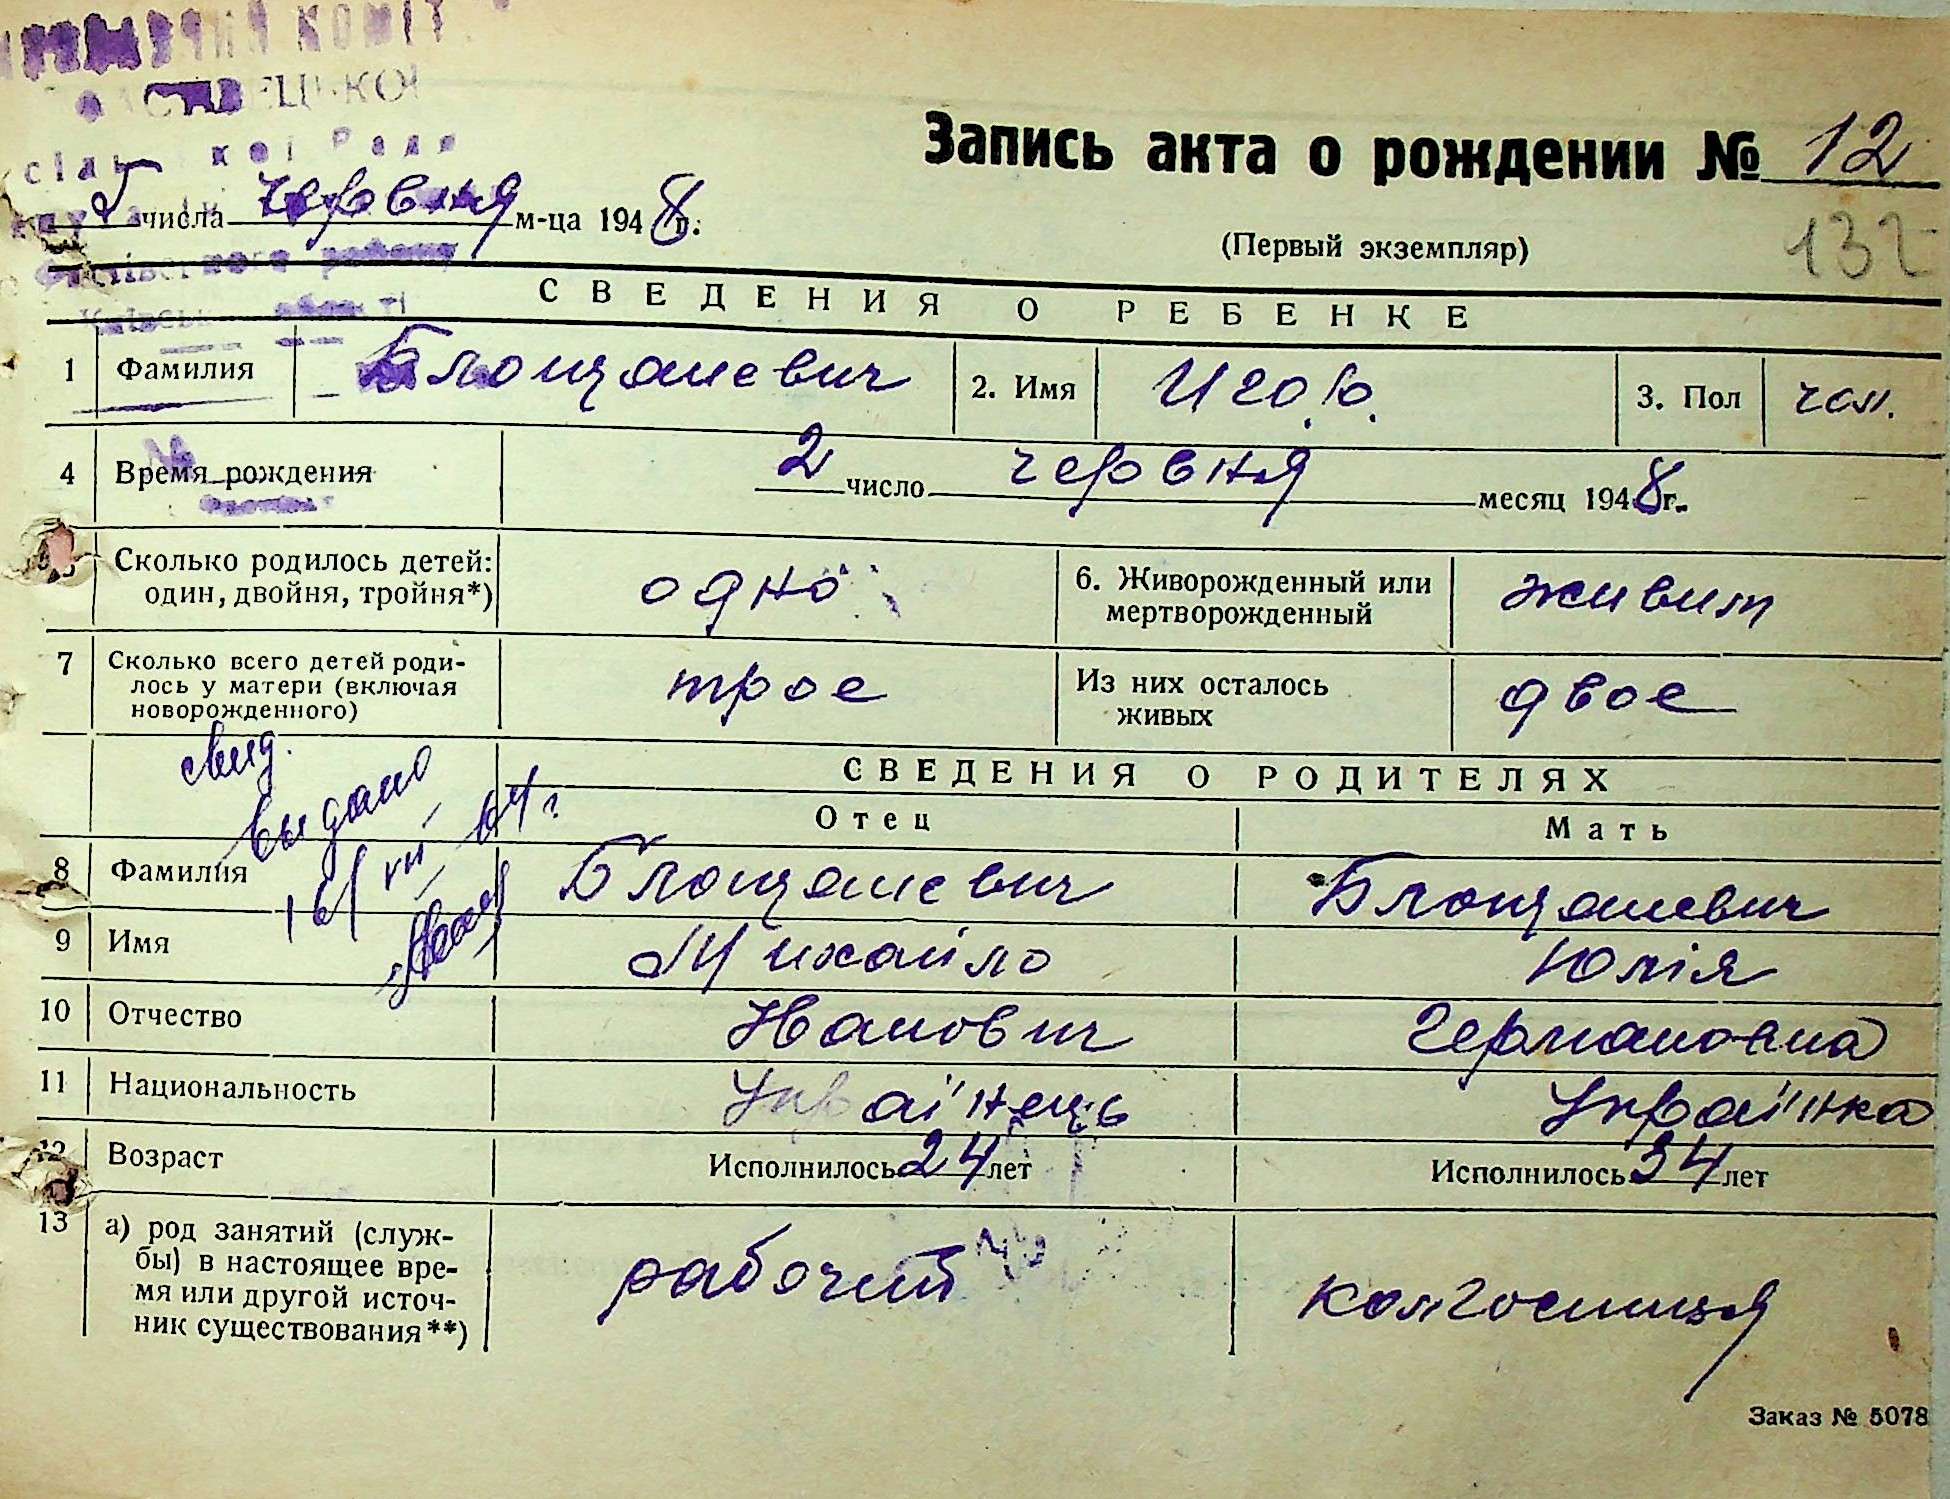 КОМІТ
Запись акта о рождении № 12
5 числа червня м-ца 1948 г.
(Первый экземпляр)
132
СВЕДЕНИЯ О РЕБЕНКЕ
1 Фамилия Блощаневич 2. Имя Игор. 3. Пол чол.
4 Время рождения 2 число червня месяц 1948 г.
Сколько родилось детей: один, двойня, тройня*) одно 6. Живорожденный или мертворожденный живим
7 Сколько всего детей родилось у матери (включая новорожденного) трое Из них осталось живых двое
свид.
выдано
СВЕДЕНИЯ О РОДИТЕЛЯХ
Отец Мать
8 Фамилия Блощаневич Блощаневич
9 Имя Михайло Юлія
10 Отчество Иванович Германовна
11 Национальность Українець Українка
12 Возраст Исполнилось 24 лет Исполнилось 34 лет
13 а) род занятий (служ-
бы) в настоящее вре-
мя или другой источ-
ник существования**) рабочий колгосниця
Заказ № 5078